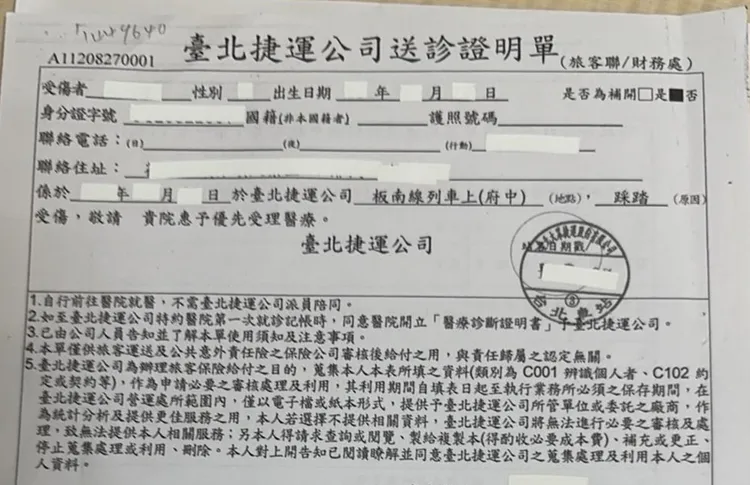 臺北捷運公司送診證明單(旅客聯/財務處)
A11208270001
受傷者 性別 出生日期 年 月 日 是否為補開□是■否
身分證字號 國籍(非本國籍者) 護照號碼
聯絡電話：(日) (夜) (行動)
聯絡住址：
係於 年 月 日於臺北捷運公司 板南線列車上(府中) (地點)， 踩踏 (原因)
受傷，敬請 貴院惠予優先受理醫療。
臺北捷運公司
日期戳
台北車站
1.自行前往醫院就醫，不需臺北捷運公司派員陪同。
2.如至臺北捷運公司特約醫院第一次就診記帳時，同意醫院開立「醫療診斷證明書」予臺北捷運公司。
3.已由公司人員告知並了解本單使用須知及注意事項。
4.本單僅供旅客運送及公共意外責任險之保險公司審核後給付之用，與責任歸屬之認定無關。
5.臺北捷運公司為辦理旅客保險給付之目的，蒐集本人本表所填之資料(類別為 C001 辨識個人者、C102 約
定或契約等)，作為申請必要之審核處理及利用，其利用期間自填表日起至執行業務所必須之保存期間，在
臺北捷運公司營運處所範圍內，僅以電子檔或紙本形式，提供予臺北捷運公司所管單位或委託之廠商，作
為統計分析及提供更佳服務之用，本人若選擇不提供相關資料，臺北捷運公司將無法進行必要之審核及處
理，致無法提供本人相關服務；另本人得請求查詢或閱覽、製給複製本(得酌收必要成本費)、補充或更正、
停止蒐集處理或利用、刪除。本人對上開告知已閱讀瞭解並同意臺北捷運公司之蒐集處理及利用本人之個
人資料。